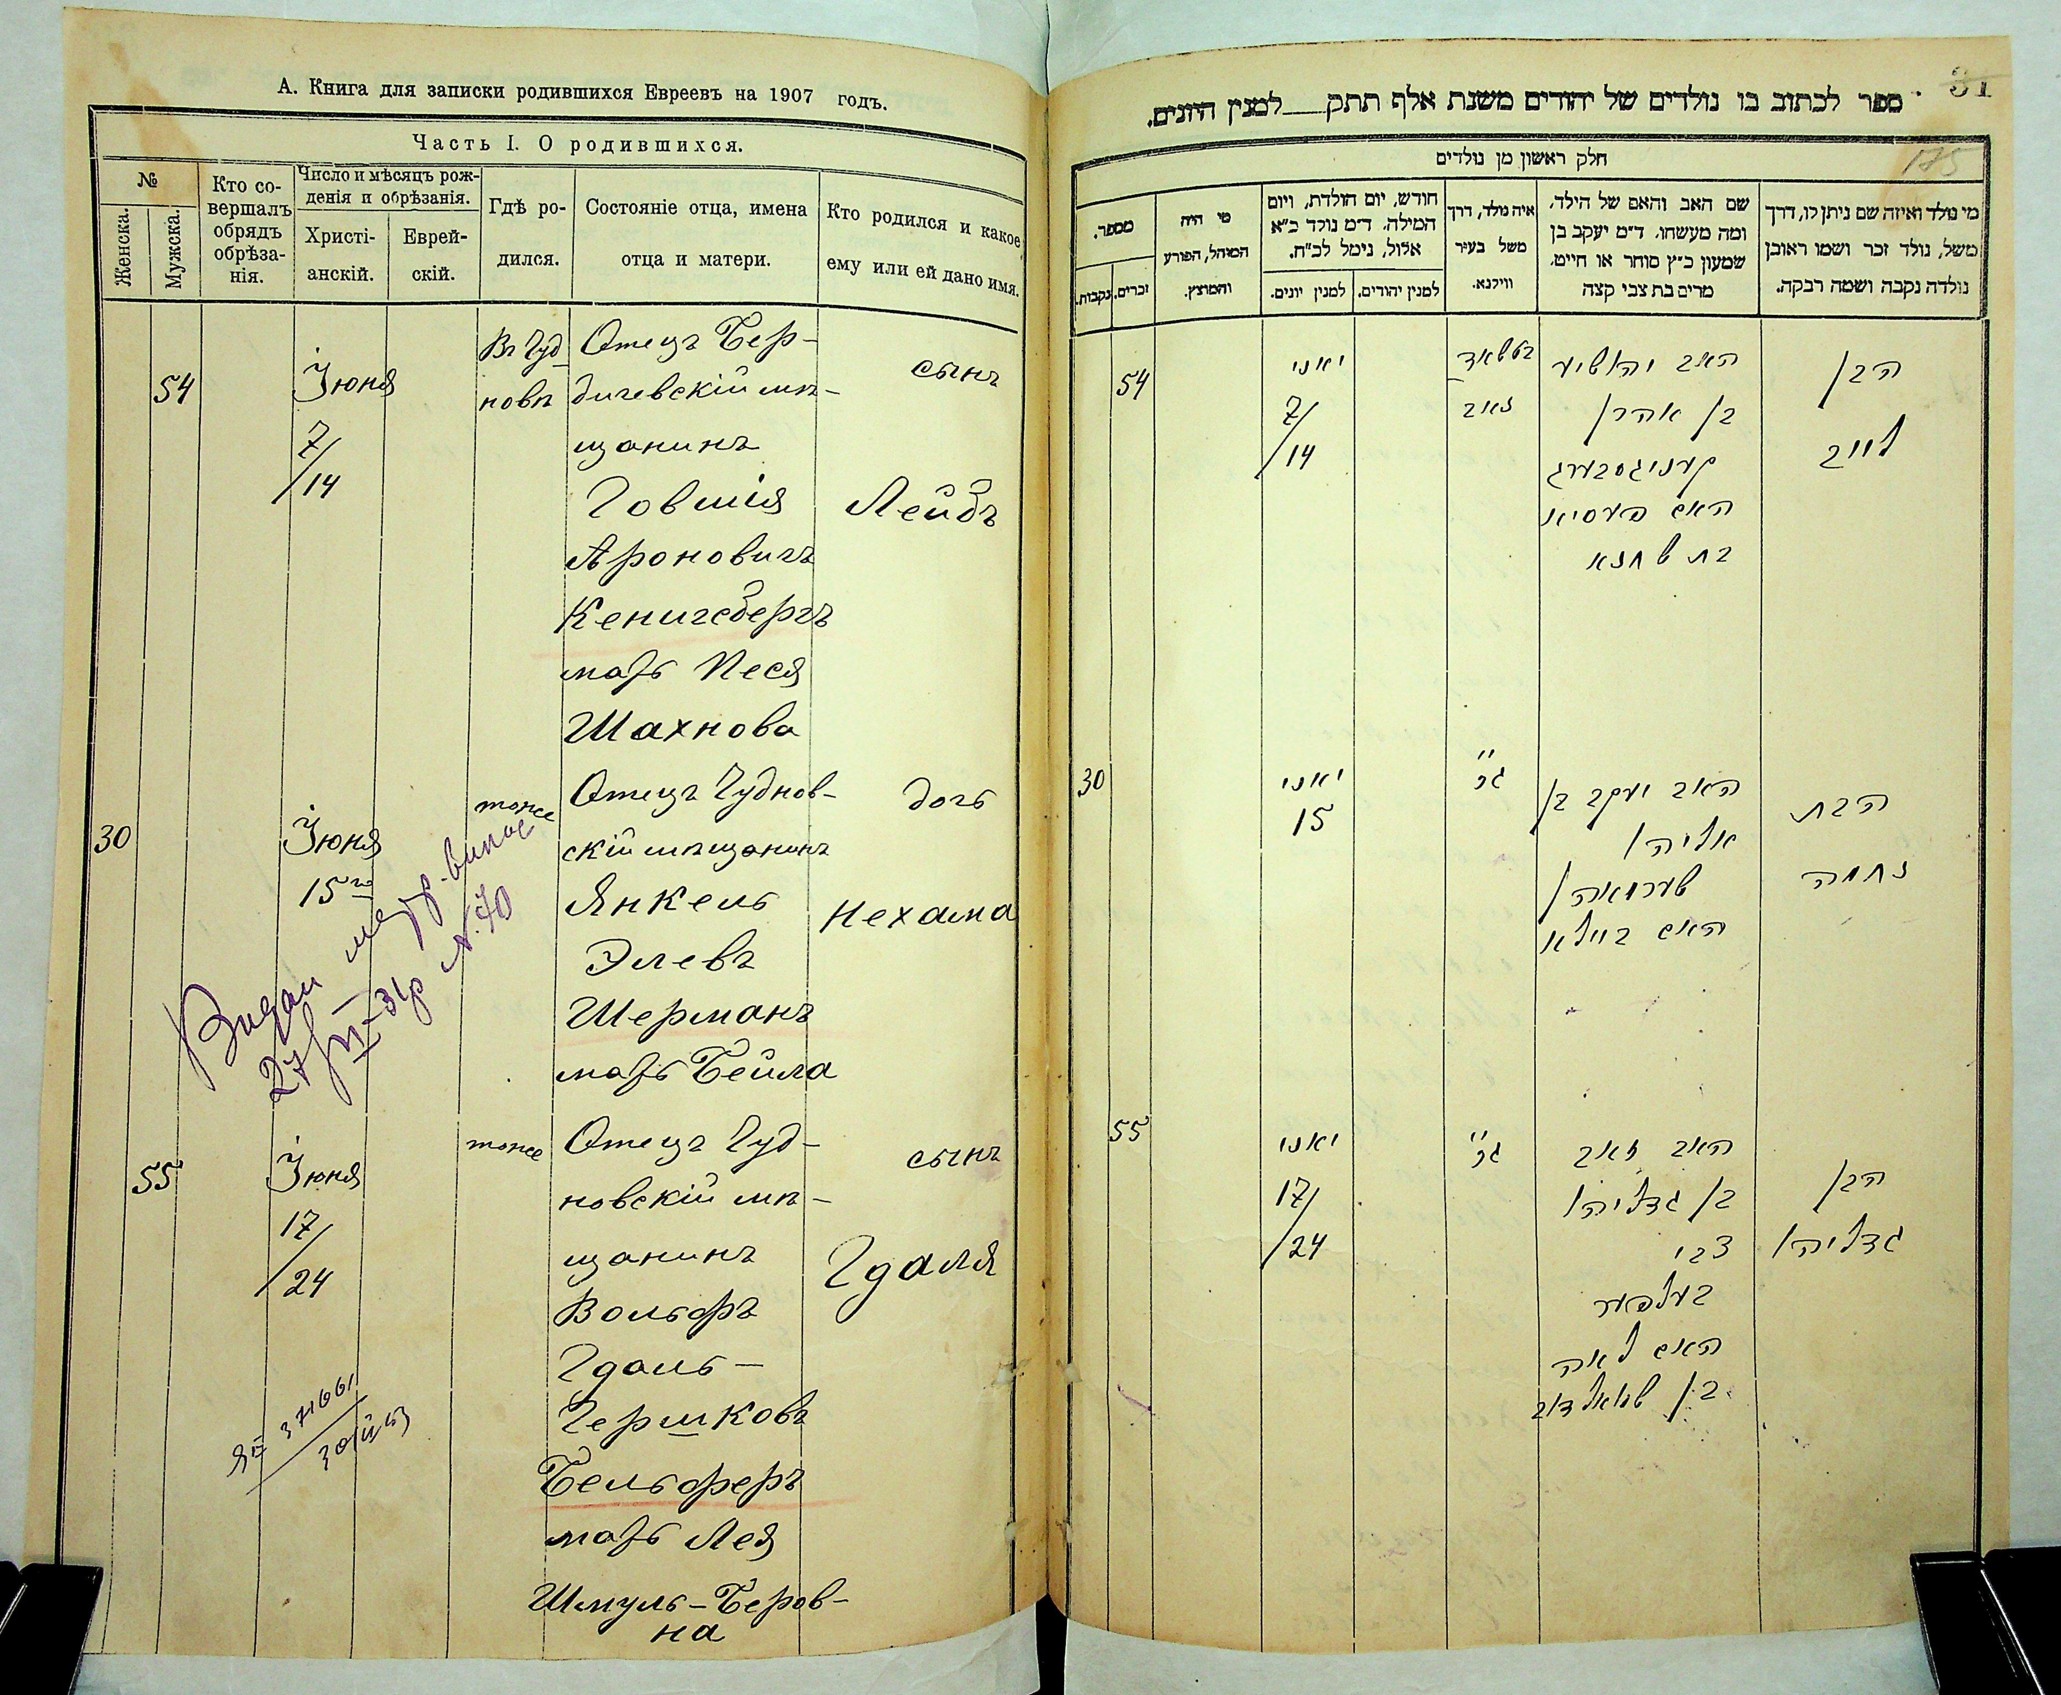 А. Книга для записки родившихся Евреевъ на 1907 годъ.
Часть I. О родившихся.
№
Женска.
Мужска.
Кто со-
вершалъ
обрядъ
обрѣза-
нія.
Число и мѣсяцъ рож-
денія и обрѣзанія.
Христі-
анскій.
Еврей-
скій.
Гдѣ ро-
дился.
Состояніе отца, имена
отца и матери.
Кто родился и какое
ему или ей дано имя.
54
Іюня
7/
/14
Въ Чуд
новѣ
Отецъ Бер-
дичевскій мѣ-
щанинъ
Говшія
Ароновичъ
Кенигсбергъ
мать Песя
Шахнова
сынъ
Лейбъ
30
Іюня
15го
тоже
Отецъ Чуднов-
скій мѣщанинъ
Янкель
Элевъ
Шерманъ
мать Бейла
дочь
Нехама
27/VI-31р №70
55
Іюня
17/
/24
тоже
Отецъ Чуд-
новскій мѣ-
щанинъ
Вольфъ
Гдаль-
Гершковъ
Бельферъ
мать Лея
Шмуль-Беров-
на
сынъ
Гдаля
371661
31
175
ספר לכתוב בו נולדים של יהודים משנת אלף תתק___למנין היונים.
חלק ראשון מן נולדים
מספר.
נקבות.
זכרים.
מי היה
המוהל, הפורע
והמוצץ.
חודש, יום הולדת, ויום
המילה. ד״מ נולד כ״א
אלול, נימל לכ״ח.
למנין יונים.
למנין יהודים.
איה נולד, דרך
משל בעיר
ווילנא.
שם האב והאם של הילד,
ומה מעשהו. ד״מ יעקב בן
שמעון כ״ץ סוחר או חייט,
מרים בת צבי קצה
מי נולד ואיזה שם ניתן לו, דרך
משל, נולד זכר ושמו ראובן
נולדה נקבה ושמה רבקה.
54
יאני
7/
/14
האב יהושיע
בן אהרן
קעניגסבערג
האם פעסיא
בת שחנא
הבן
לייב
30
יאני
15
האב יעקב בן
אליהו
שערמאן
האם ביילא
הבת
נחמה
55
יאני
17/
/24
האב זאב
בן גדליהו
צבי
בעלפער
האם לאה
הבן
גדליהו